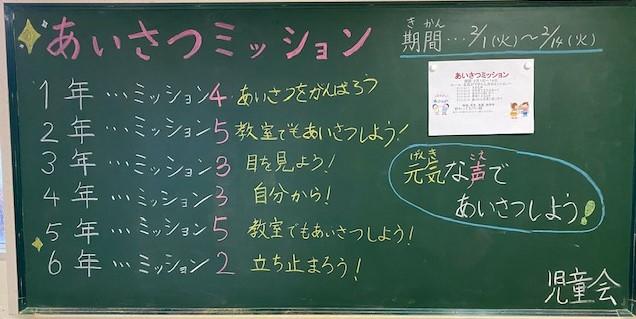 あいさつミッション
きかん
期間…2/1(火)～2/14(火)
1年…ミッション4 あいさつをがんばろう
2年…ミッション5 教室でもあいさつしよう!
3年…ミッション3 目を見よう!
4年…ミッション3 自分から!
5年…ミッション5 教室でもあいさつしよう!
6年…ミッション2 立ち止まろう!
あいさつミッション
げんき こえ
元気な声で
あいさつしよう!
児童会